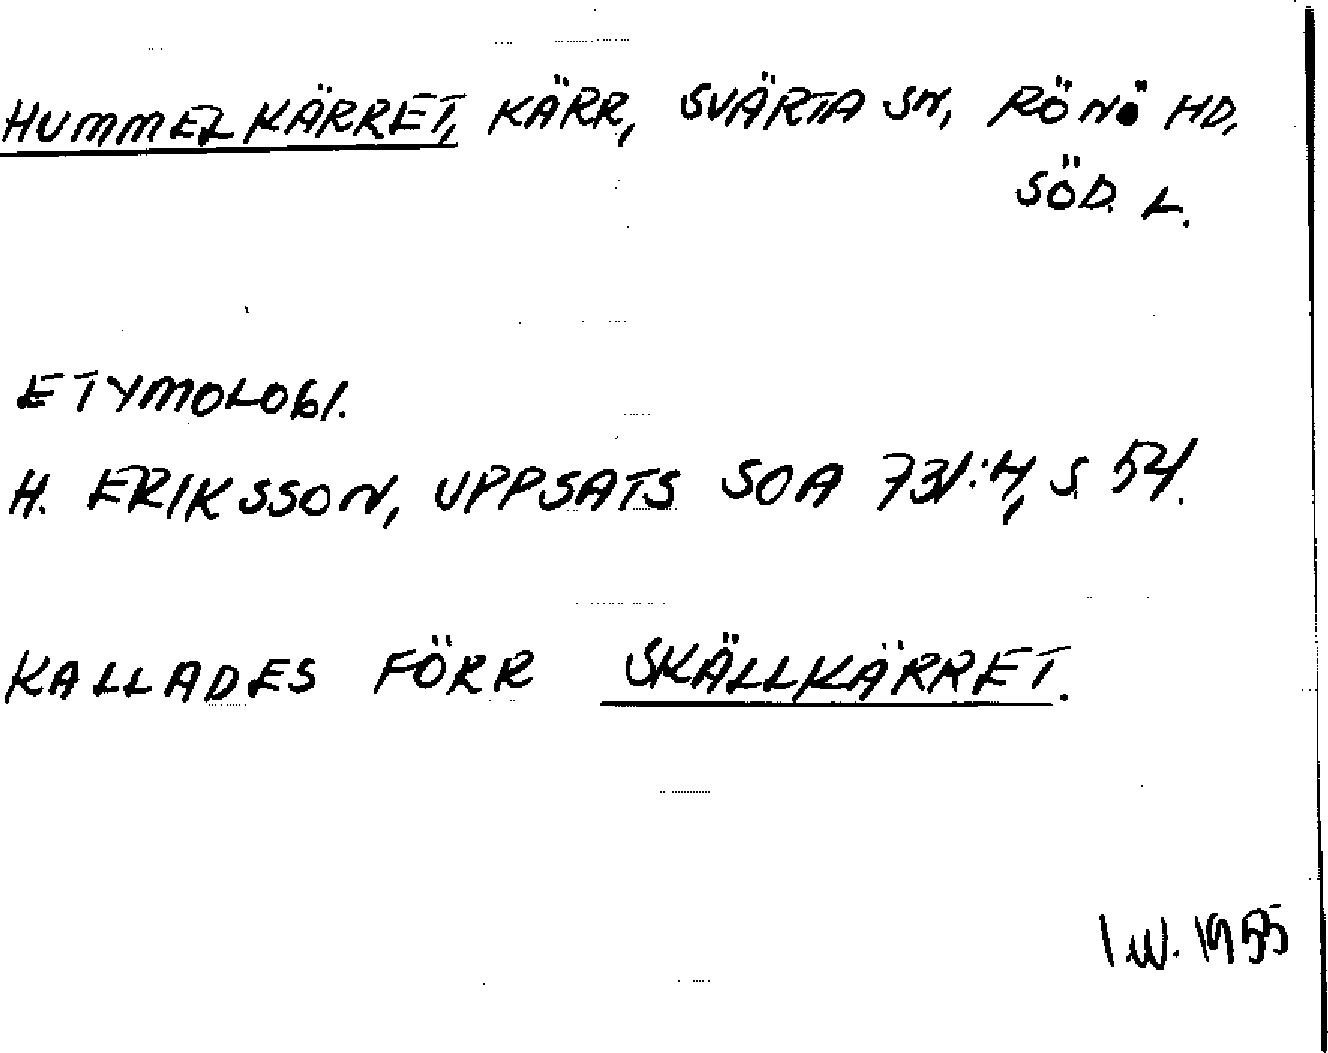 HUMMELKÄRRET, KÄRR, SVÄRTA SN, RÖNÖ HD,
SÖD. L.
ETYMOLOGI.
H. ERIKSSON, UPPSATS SOA 731:4, S 54.
KALLADES FÖRR SKÄLLKÄRRET.
I W. 1955